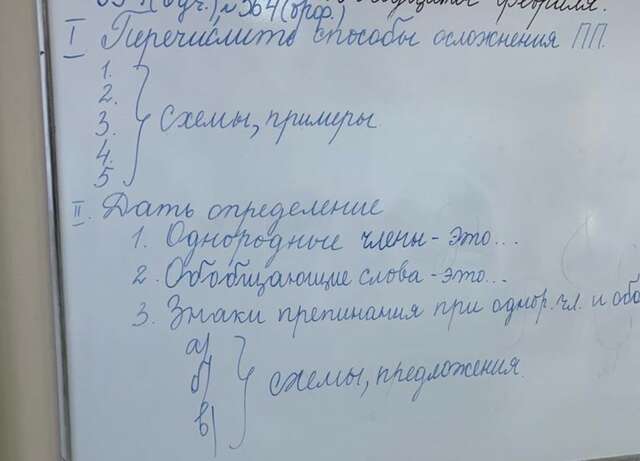 № 364 (орф.) февраля.
I Перечислить способы осложнения ПП.
1.
2.
3.
4.
5
схемы, примеры.
II. Дать определение
1. Однородные члены - это...
2. Обобщающие слова - это...
3. Знаки препинания при однор. чл. и обо
а)
б)
в)
схемы, предложения.